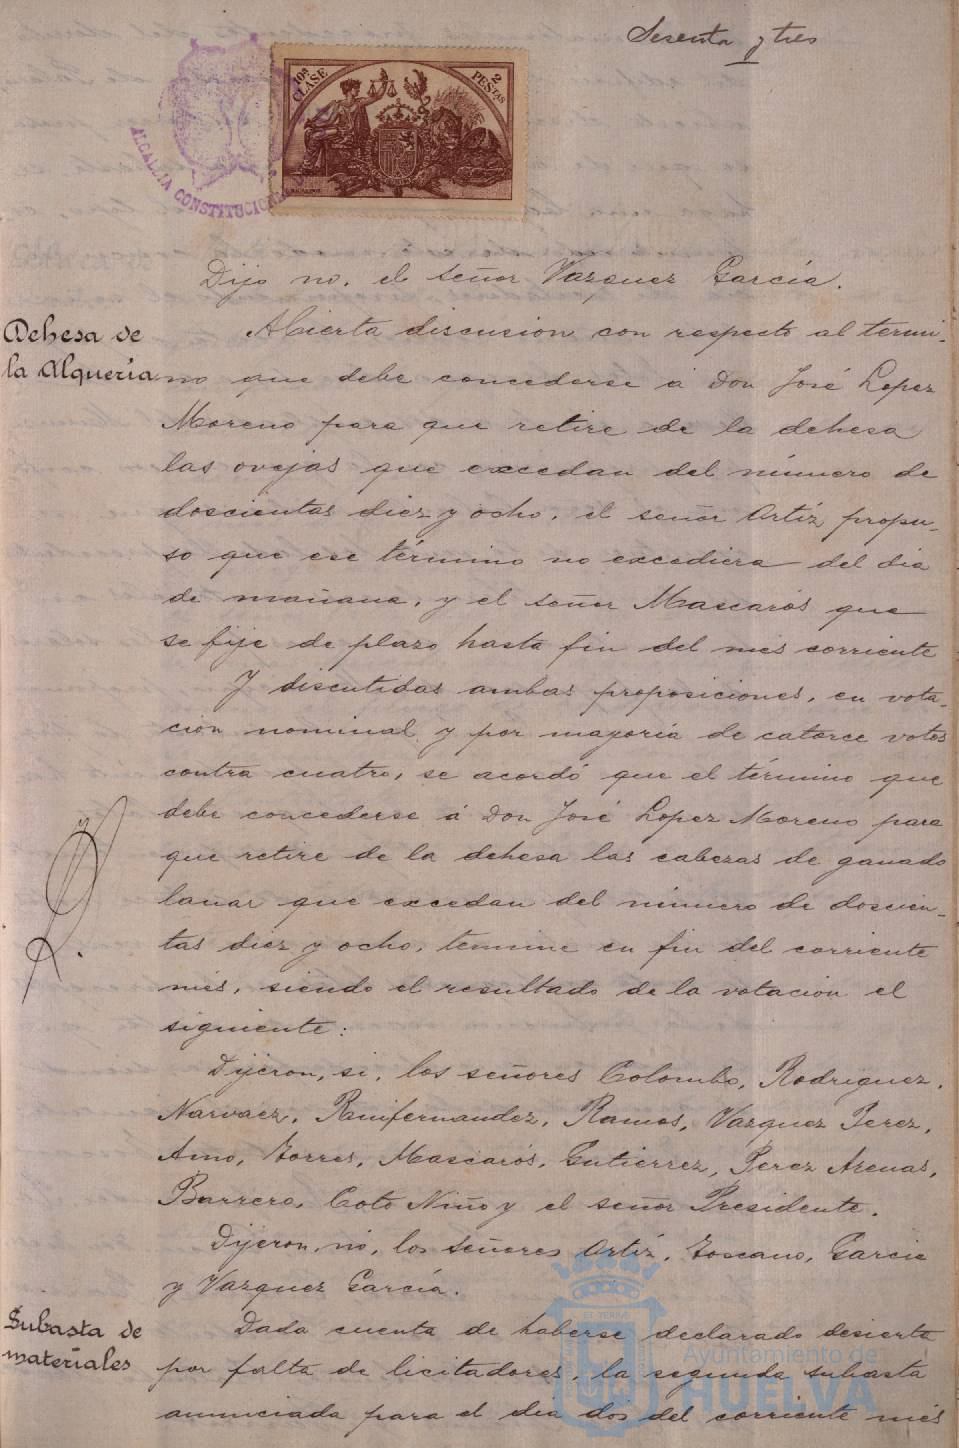 Sesenta y tres
10ª CLASE
2 PESTAS
ALCALDIA CONSTITUCIONAL
Dijo no, el señor Vazquez García.
Dehesa de
la Alquería
Abierta discusion con respecto al termi-
no que debe concederse á Don José Lopez
Moreno para que retire de la dehesa
las ovejas que excedan del número de
doscientas diez y ocho, el señor Ortíz propu-
so que ese término no excediera del dia
de mañana, y el señor Mascarós que
se fije de plazo hasta fin del més corriente
Y discutidas ambas proposiciones, en vota-
ción nominal y por mayoría de catorce votos
contra cuatro, se acordó que el término que
debe concederse á Don José Lopez Moreno para
que retire de la dehesa las cabezas de ganado
lanar que excedan del número de doscien-
tas diez y ocho, termine en fin del corriente
més, siendo el resultado de la votación el
siguiente:
Dijeron, si, los señores Colombo, Rodriguez,
Narvaez, Ranifernandez, Ramos, Vazquez Perez,
Amo, Torres, Mascarós, Gutierrez, Perez Arenas,
Barrero, Coto Niño y el señor Presidente.
Dijeron, no, los señores Ortíz, Toscano, García
y Vazquez García.
Subasta de
materiales
Dada cuenta de haberse declarado desierta
por falta de licitadores, la segunda subasta
anunciada para el dia dos del corriente més
Ayuntamiento de
HUELVA